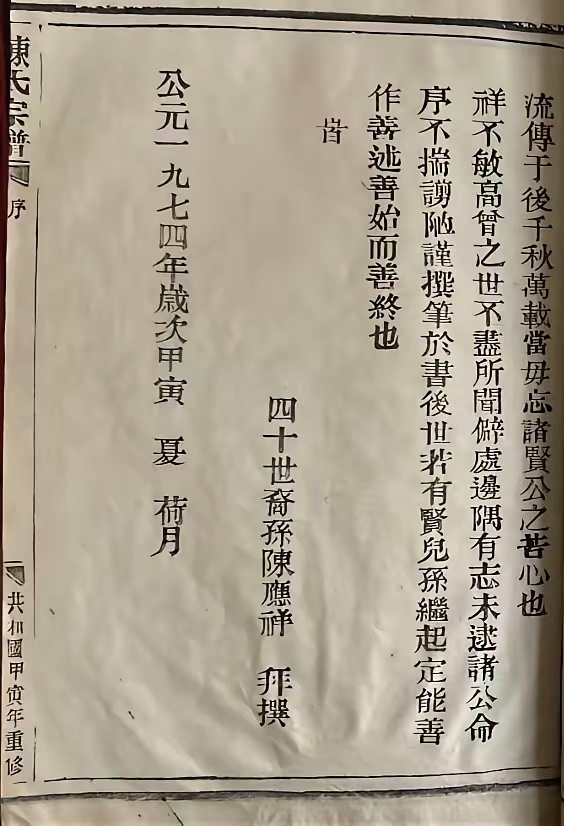 流傳于後千秋萬載當毋忘諸賢公之苦心也
祥不敏高曾之世不盡所聞僻處邊隅有志未逮諸公命
序不揣謭陋謹撰筆於書後世若有賢兒孫繼起定能善
作善述善始而善終也
旹
四十世裔孫陳應祥 拜撰
公元一九七四年歲次甲寅 夏 荷月
陳氏宗譜 序 共和國甲寅年重修